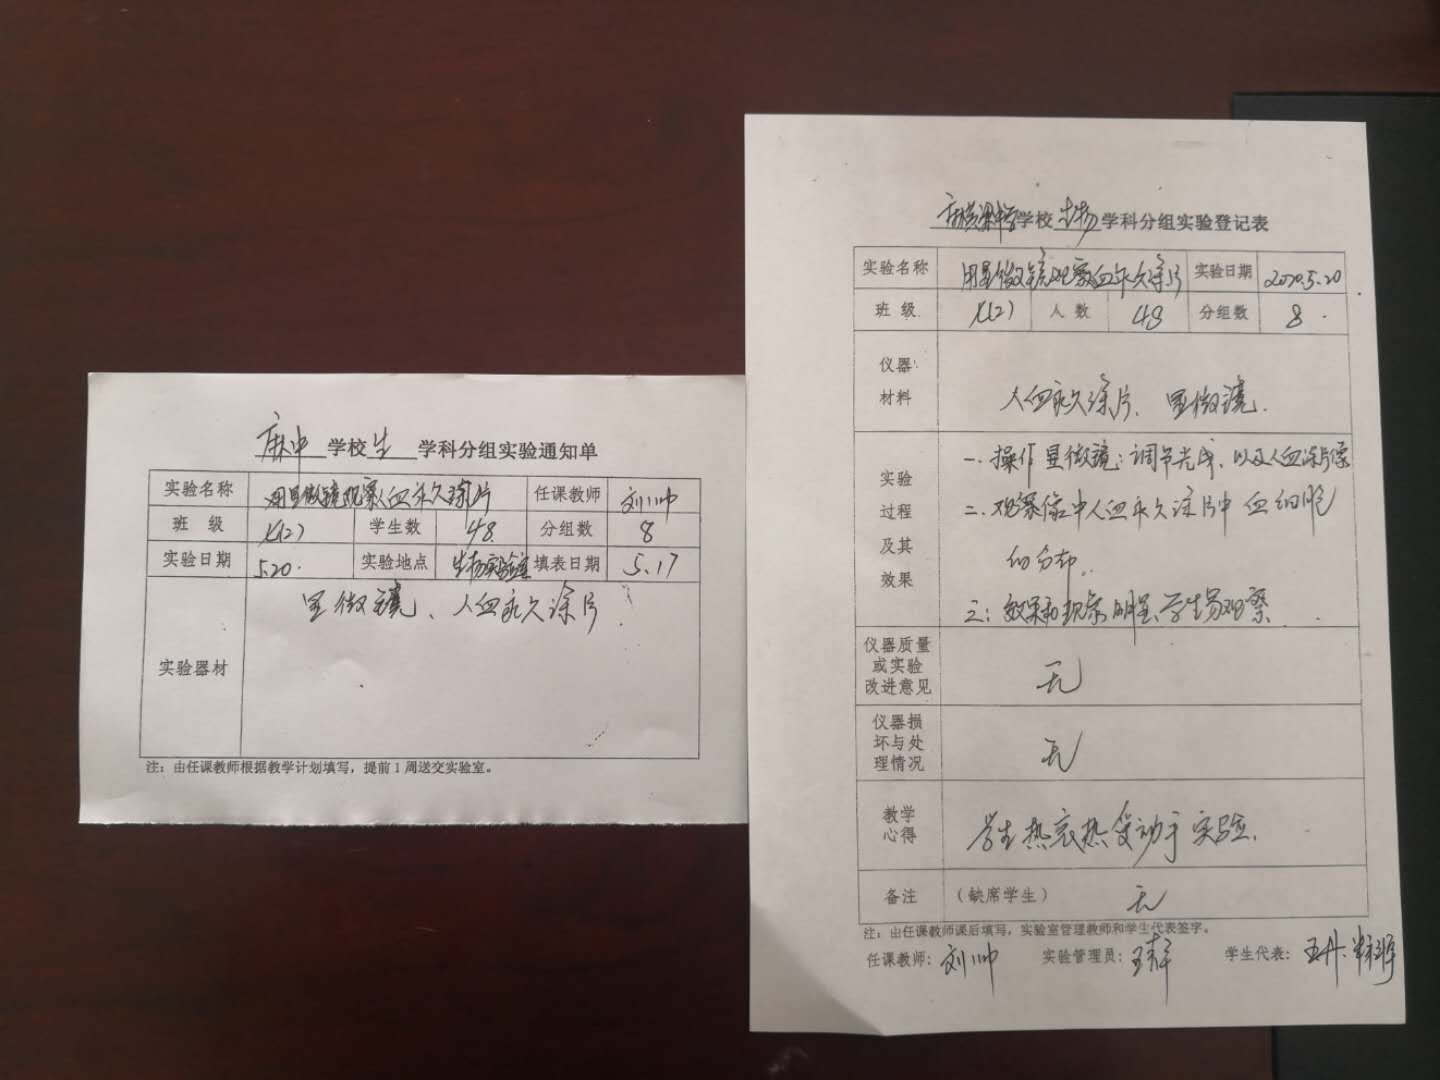 麻中 学校 生 学科分组实验通知单
实验名称 用显微镜观察人血永久涂片 任课教师 刘帅
班 级 八(2) 学生数 48 分组数 8
实验日期 5.20. 实验地点 生物实验室 填表日期 5.17
显微镜、人血永久涂片.
实验器材
注：由任课教师根据教学计划填写，提前1周送交实验室。
学校 生物 学科分组实验登记表
实验名称 用显微镜观察血永久涂片 实验日期 2020.5.20
班 级 八(2) 人 数 48 分组数 8
仪器
材料
人血永久涂片、显微镜.
实验
过程
及其
效果
一、操作显微镜：调节光线，以及人血涂片像
二、观察像中人血永久涂片中血细胞
的分布.
三：效果和现象明显、学生易观察.
仪器质量
或实验
改进意见
无
仪器损
坏与处
理情况
无
教学
心得
学生热衷热爱动手实验.
备注 （缺席学生） 无
注：由任课教师课后填写，实验室管理教师和学生代表签字。
任课教师：刘帅 实验管理员： 学生代表：王丹、